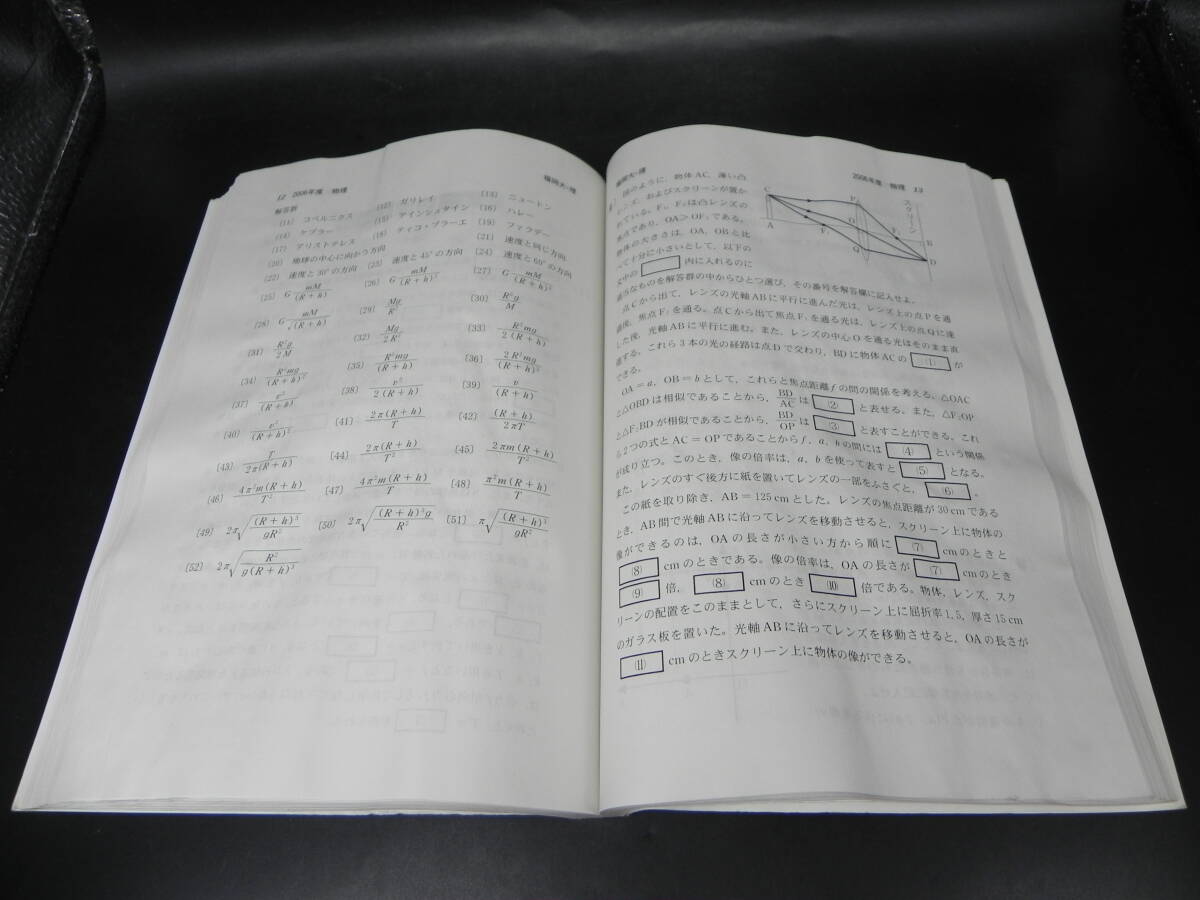 12 2006年度 物理
福岡大-理
解答群
(11) コペルニクス (12) ガリレイ (13) ニュートン
(14) ケプラー (15) アインシュタイン (16) ハレー
(17) アリストテレス (18) ティコ・ブラーエ (19) ファラデー
(20) 地球の中心に向かう方向 (21) 速度と同じ方向
(22) 速度と30°の方向 (23) 速度と45°の方向 (24) 速度と60°の方向
(25) G mM/(R+h) (26) G mM/(R+h)² (27) G mM/(R+h)³
(28) G mM/√(R+h) (29) Mg/R² (30) R²g/M
(31) R²g/2M (32) Mg/2R² (33) R²mg/2(R+h)
(34) R²mg/(R+h)² (35) R²mg/(R+h) (36) 2R²mg/(R+h)²
(37) v²/(R+h) (38) v²/2(R+h) (39) v/(R+h)
(40) v²/(R+h)² (41) 2π(R+h)/T (42) (R+h)/2πT
(43) T/2π(R+h) (44) 2π(R+h)/T² (45) 2πm(R+h)/T²
(46) 4π²m(R+h)/T² (47) 4π²m(R+h)/T (48) π²m(R+h)/T
(49) 2π√((R+h)³/gR²) (50) 2π√((R+h)³g/R²) (51) π√((R+h)³/gR²)
(52) 2π√(R²/g(R+h)³)
福岡大-理
2006年度 物理 13
図のように，物体AC，薄い凸
レンズ，およびスクリーンが置か
れている。F₁，F₂は凸レンズの
焦点であり，OA＞OF₁である。
物体の大きさは，OA，OBと比
べて十分に小さいとして，以下の
文中の 内に入れるのに
適当なものを解答群の中からひとつ選び，その番号を解答欄に記入せよ。
C
A
F₁
P
O
Q
F₂
B
D
スクリーン
点Cから出て，レンズの光軸ABに平行に進んだ光は，レンズ上の点Pを通
過後，焦点F₂を通る。点Cから出て焦点F₁を通る光は，レンズ上の点Qに達
した後，光軸ABに平行に進む。また，レンズの中心Oを通る光はそのまま直
進する。これら3本の光の経路は点Dで交わり，BDに物体ACの (1) が
できる。
OA＝a，OB＝bとして，これらと焦点距離fの間の関係を考える。△OAC
と△OBDは相似であることから，BD/ACは (2) と表せる。また，△F₂OP
と△F₂BDが相似であることから，BD/OPは (3) と表すことができる。これ
ら2つの式とAC＝OPであることからf，a，bの間には (4) という関係
が成り立つ。このとき，像の倍率は，a，bを使って表すと (5) となる。
また，レンズのすぐ後方に紙を置いてレンズの一部をふさぐと， (6) 。
この紙を取り除き，AB＝125cmとした。レンズの焦点距離が30cmである
とき，AB間で光軸ABに沿ってレンズを移動させると，スクリーン上に物体の
像ができるのは，OAの長さが小さい方から順に (7) cmのときと
(8) cmのときである。像の倍率は，OAの長さが (7) cmのとき
(9) 倍， (8) cmのとき (10) 倍である。物体，レンズ，スク
リーンの配置をこのままとして，さらにスクリーン上に屈折率1.5，厚さ15cm
のガラス板を置いた。光軸ABに沿ってレンズを移動させると，OAの長さが
(11) cmのときスクリーン上に物体の像ができる。